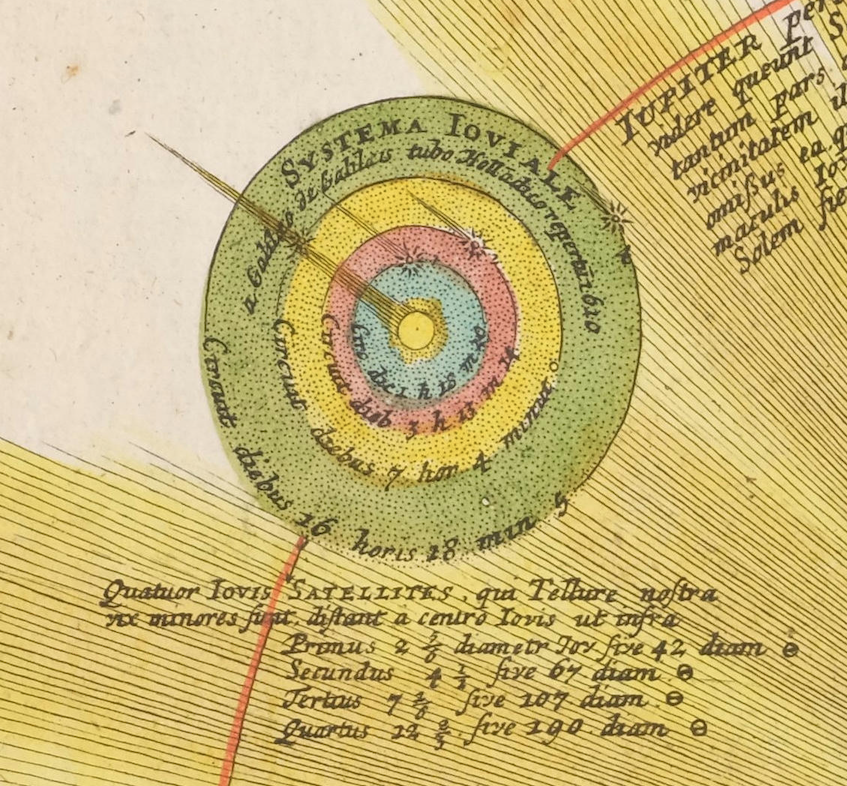 SYSTEMA IOVIALE
a Galilæo de Galileis tubo Hollandico repertũ 1610
Circ. diei 1 h 18 m
Circuit dieb 3 h 13 m
Circuit diebus 7 hor 4 minut 0
Circuit diebus 16 horis 18 min 5
IUPITER
videre queunt S
tantum pars
vicinitatem
omißus ea
maculis Iov
Solem
Quatuor Iovis SATELLITES, qui Tellure noſtra
vix minores ſunt, diſtant a centro Iovis ut infra
Primus 2 5/6 diametr Iov ſive 42 diam ⊖
Secundus 4 1/2 ſive 67 diam ⊖
Tertius 7 ſive 107 diam ⊖
Quartus 12 2/3 ſive 190 diam ⊖